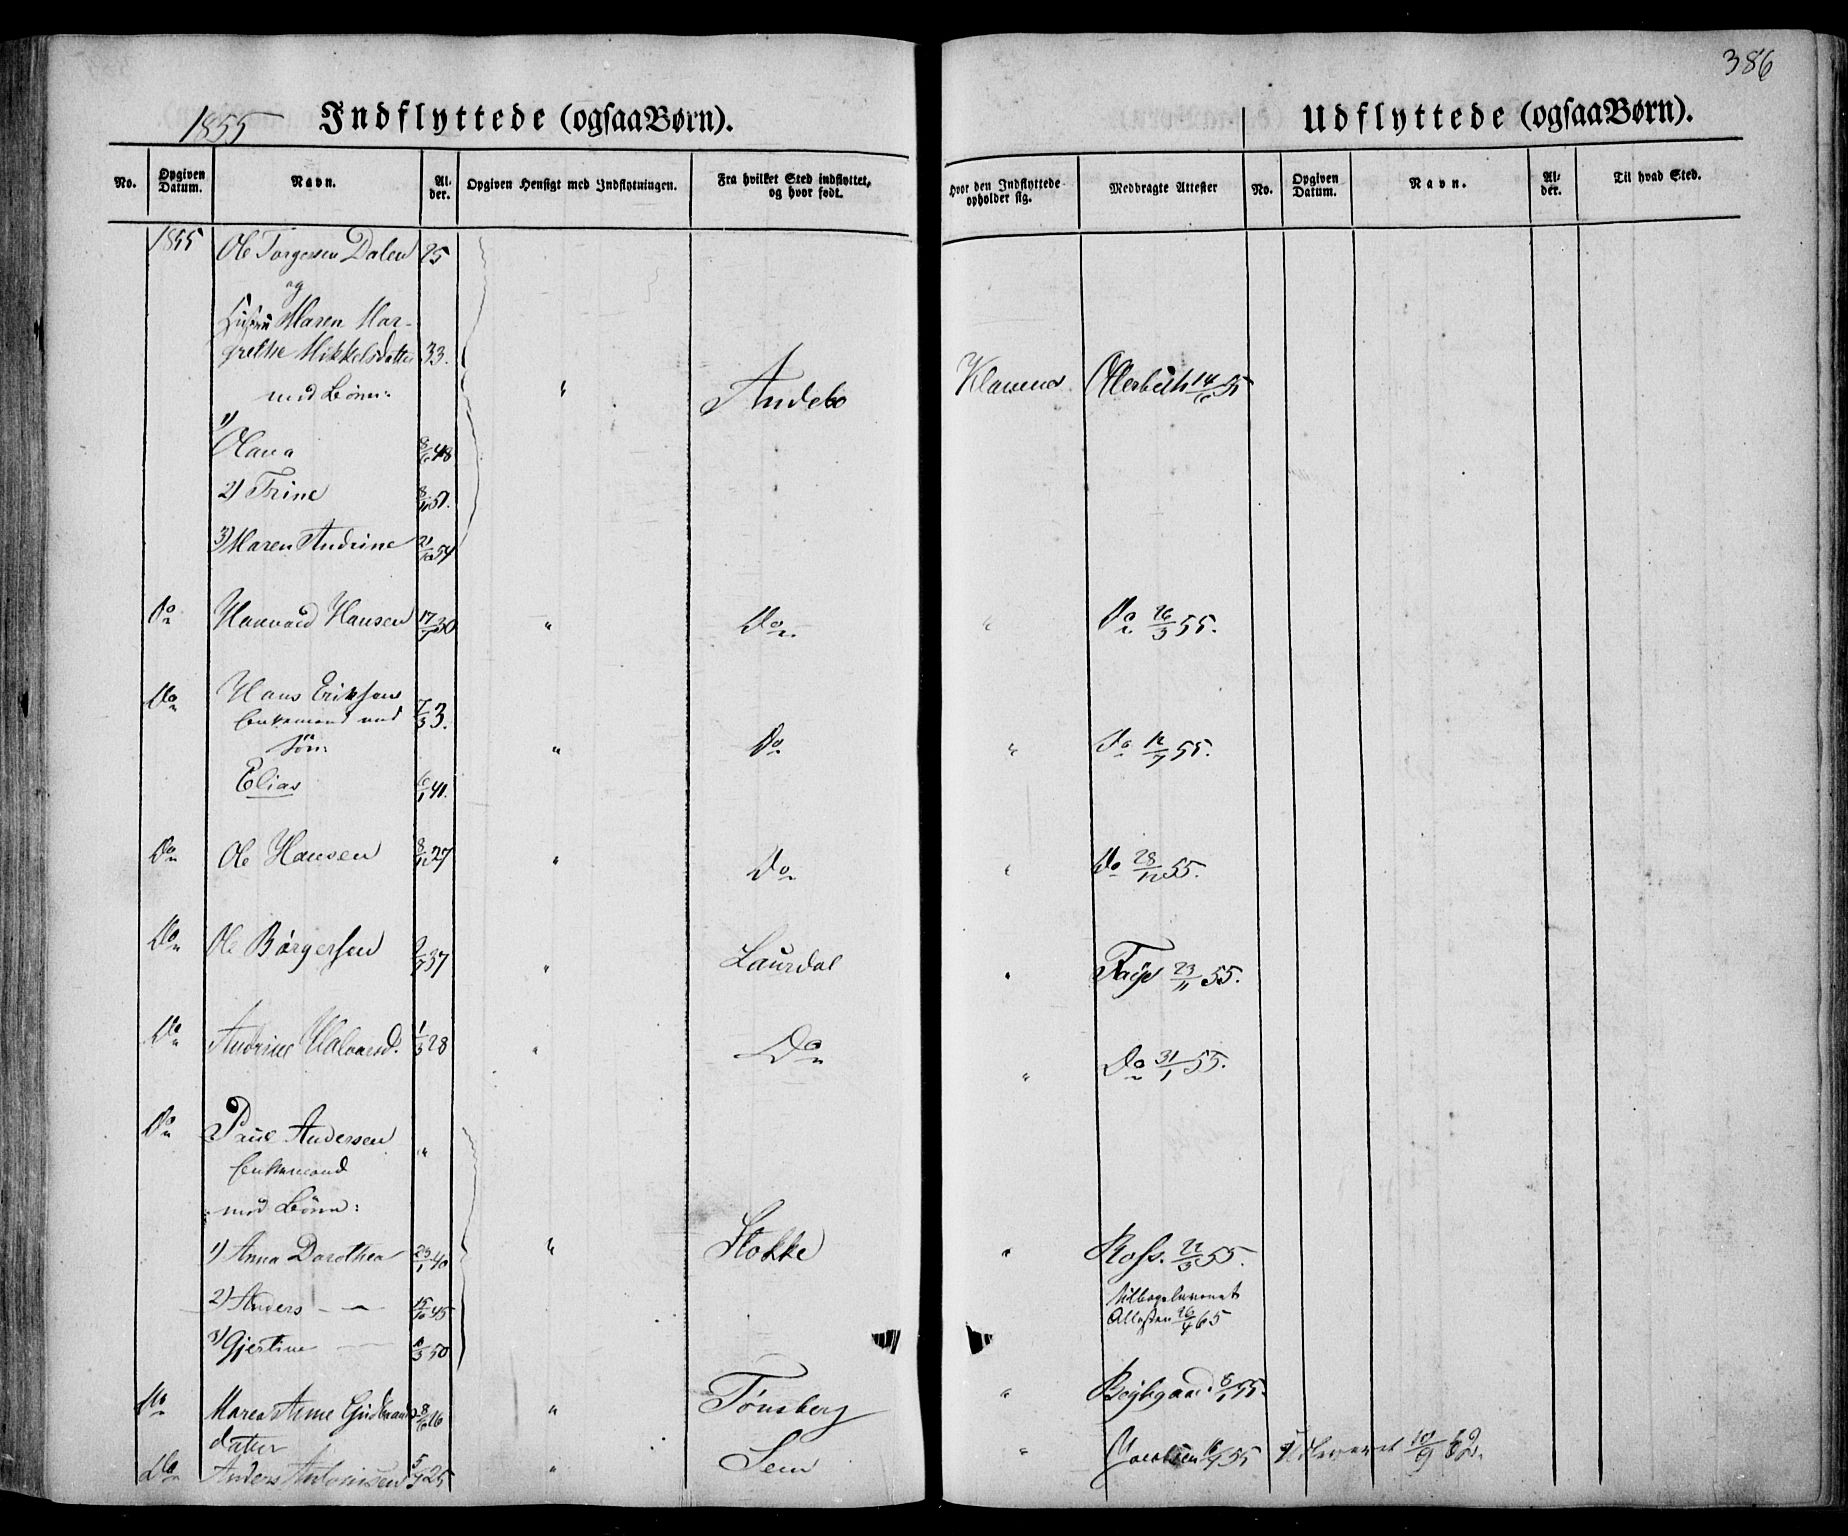 386
1855 Indflyttede (ogsaa Børn). Udflyttede (ogsaa Børn).
No. Opgiven Datum. Navn. Alder. Opgiven Hensigt med Indflytningen. Fra hvilket Sted indflyttet, og hvor født. Hvor den Indflyttede opholder sig. Medbragte Attester No. Opgiven Datum. Navn. Alder. Til hvad Sted.
1855 Ole Torgersen Dalen 25
og
Hustru Maren Mar-
grethe Mikkelsdatter 33.
med Børn: " Andebo Klavenes 14/6 55
1) Olava 8/6 48
2) Trine 51.
3) Maren Andrine 21/10 54
Do Hanvald Hansen 17/7 30 " Do " Do 26/3 55.
Do Hans Eriksen 7/3 3.
Enkemand med
Søn: " Do " Do 12/7 55.
Elias 41.
Do Ole Hansen 8/12 27 " Do " Do 28/12 55.
Do Ole Børgersen 2/7 37 " Laurdal " Faye 23/11 55.
Do Andrine Halvorsd. 1/3 28 " Do " Do 31/1 55.
Do Paul Andersen "
Enkemand
med Børn:
1) Anna Dorothea 23/1 40 " Stokke " Ross. 22/3 55.
2) Anders — — 15/10 45 Tilbageleveret
Attesten 26/4 65
3) Gjertine — 50
Do Maren Anne Gudbrands- 8/6 26 " Tønsberg " 8/1 55.
datter
Do Anders Antonisen 5/7 25 " Sem " Jacobsen 55 Udleveret 10/9 62.